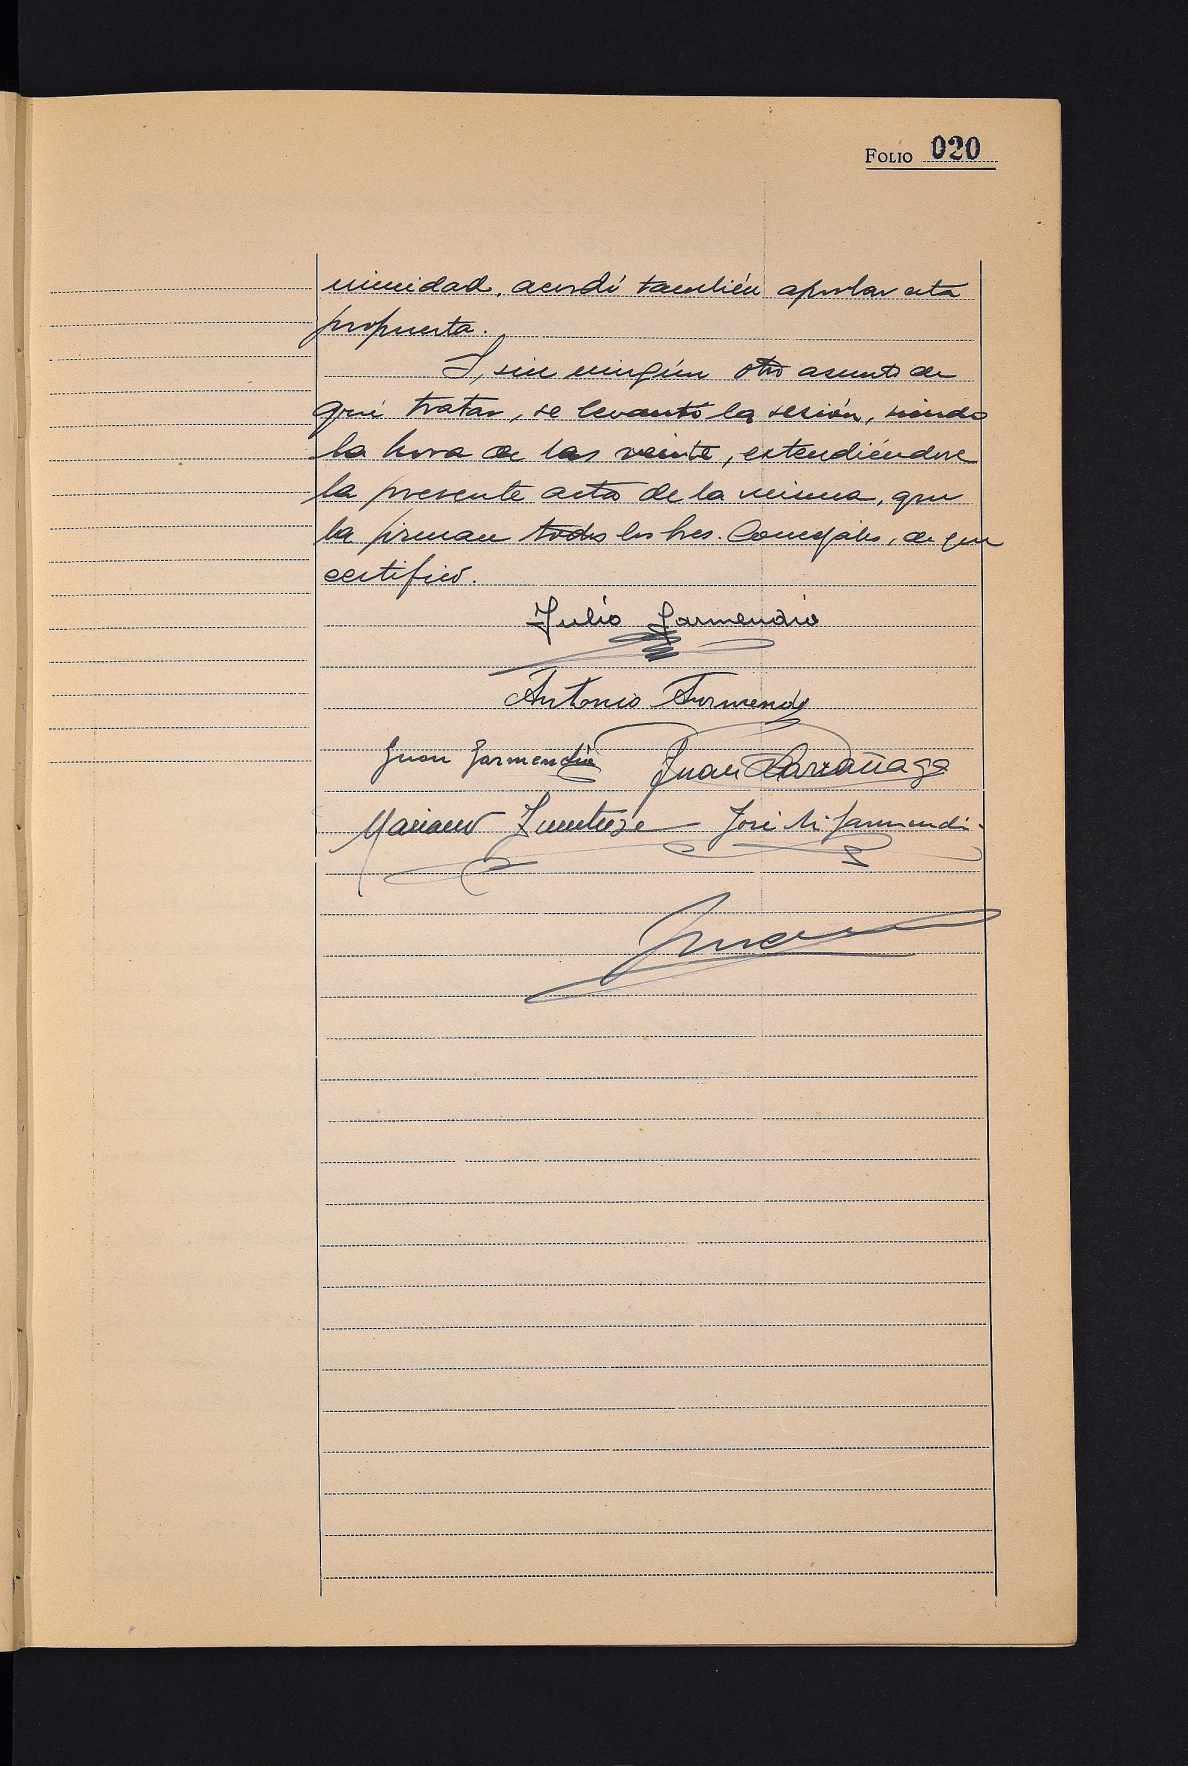 FOLIO 020
nimidad, acordó también aprobar esta
propuesta.
Y, sin ningún otro asunto de
qué tratar, se levantó la sesión, siendo
la hora de las veinte, extendiéndose
la presente acta de la misma, que
la firman todos los Sres. Concejales, de que
certifico.
Julio Garmendia
Antonio
Juan Garmendia Juan Larrañaga
Mariano José M. Garmendia